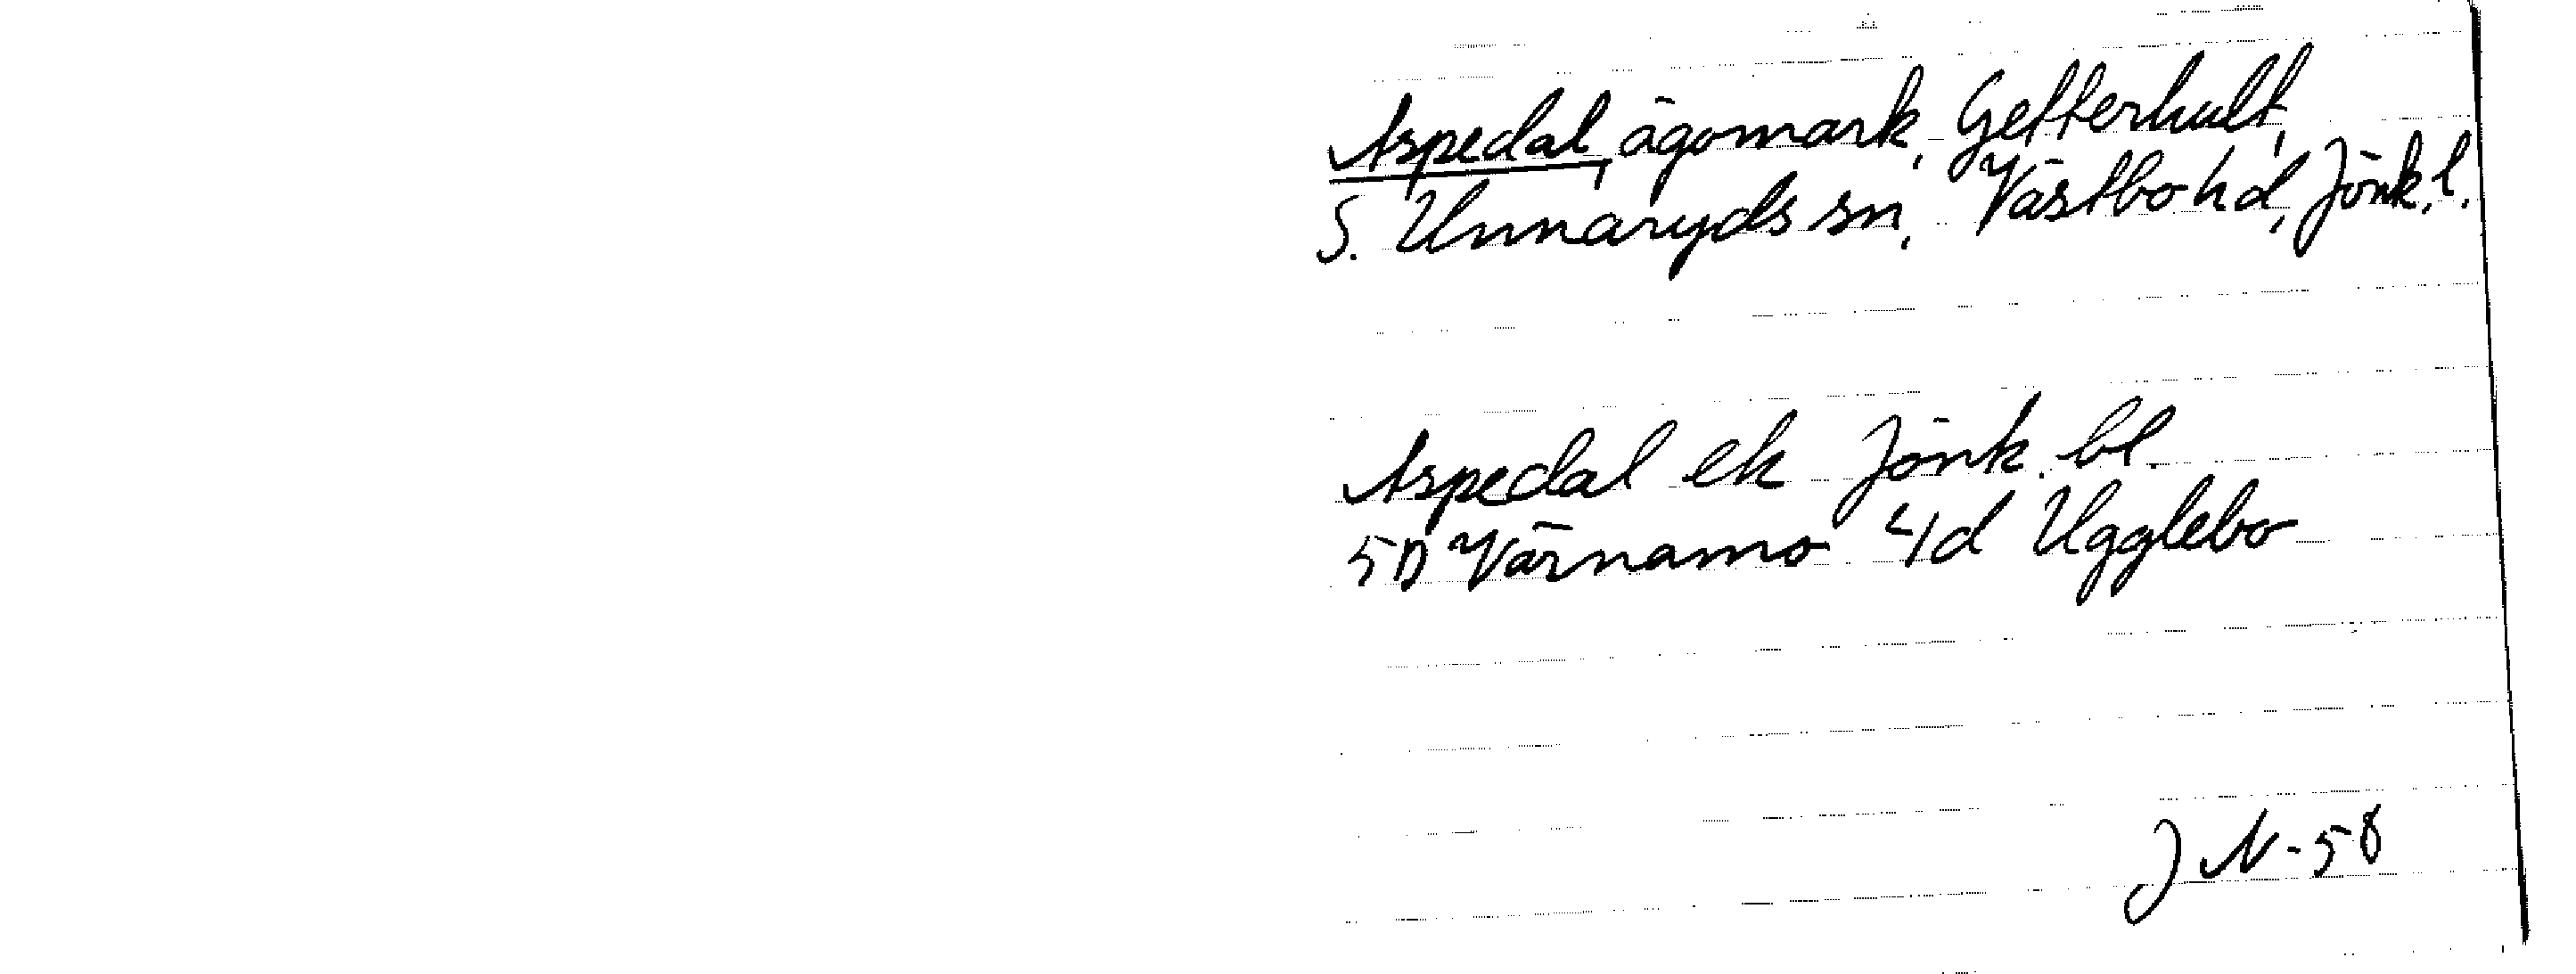 Aspedal, ägomark, Getterhult,
S. Unnaryds sn, Västbo hd, Jönk. l.
Aspedal ek Jönk. bl.
5D Värnamo 4d Ugglebo
J N-58